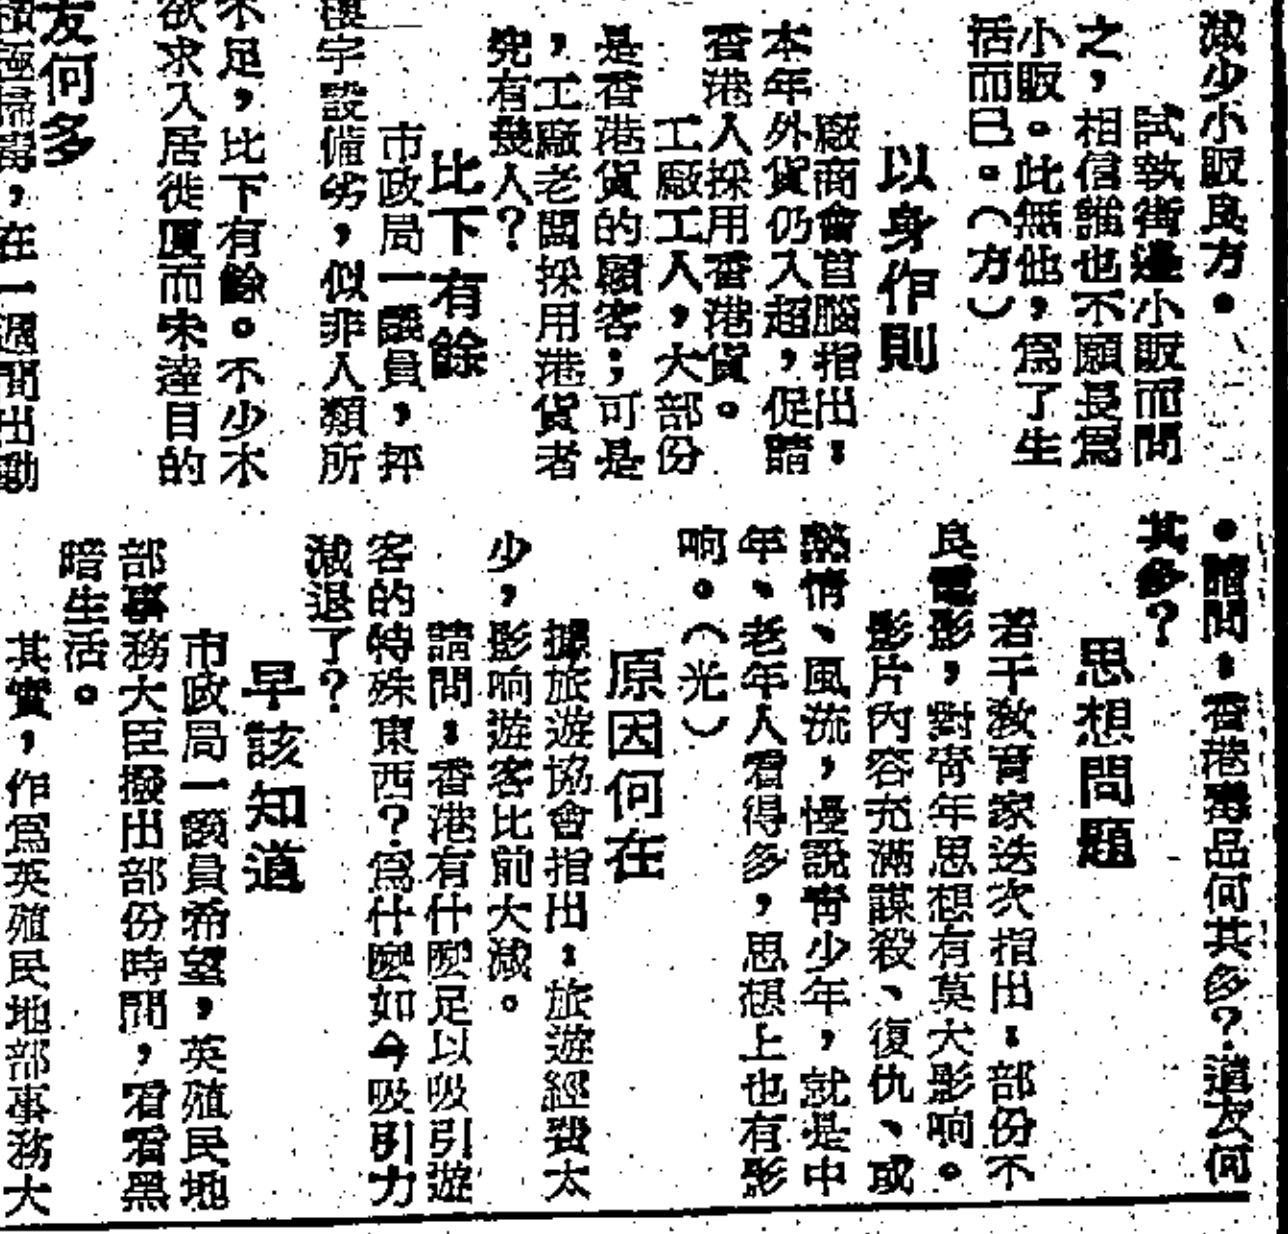 減少小販良方。
試執街邊小販而問
之，相信誰也不願長爲
小販。此無他，爲了生
活而已。（方）
以身作則
廠商會首腦指出：
本年外貨仍入超，促請
香港人採用香港貨。
工廠工人，大部份
是香港貨的顧客；可是
，工廠老闆採用港貨者
究有幾人？
比下有餘
市政局一議員，抨
樓宇設備劣，似非人類所
不足，比下有餘。不少木
欲求入居徙厦而未達目的
友何多
積極掃毒，在一週間出動
。請問：香港毒品何其多？道友何
其多？
思想問題
若干敎育家迭次指出：部份不
良電影，對靑年思想有莫大影响。
影片內容充滿謀殺、復仇、或
熱情、風流，慢說靑少年，就是中
年、老年人看得多，思想上也有影
响。（光）
原因何在
據旅遊協會指出：旅遊經費太
少，影响遊客比前大減。
請問：香港有什麽足以吸引遊
客的特殊東西？爲什麽如今吸引力
減退了？
早該知道
市政局一議員希望，英殖民地
部事務大臣撥出部份時間，看看黑
暗生活。
其實，作爲英殖民地部事務大